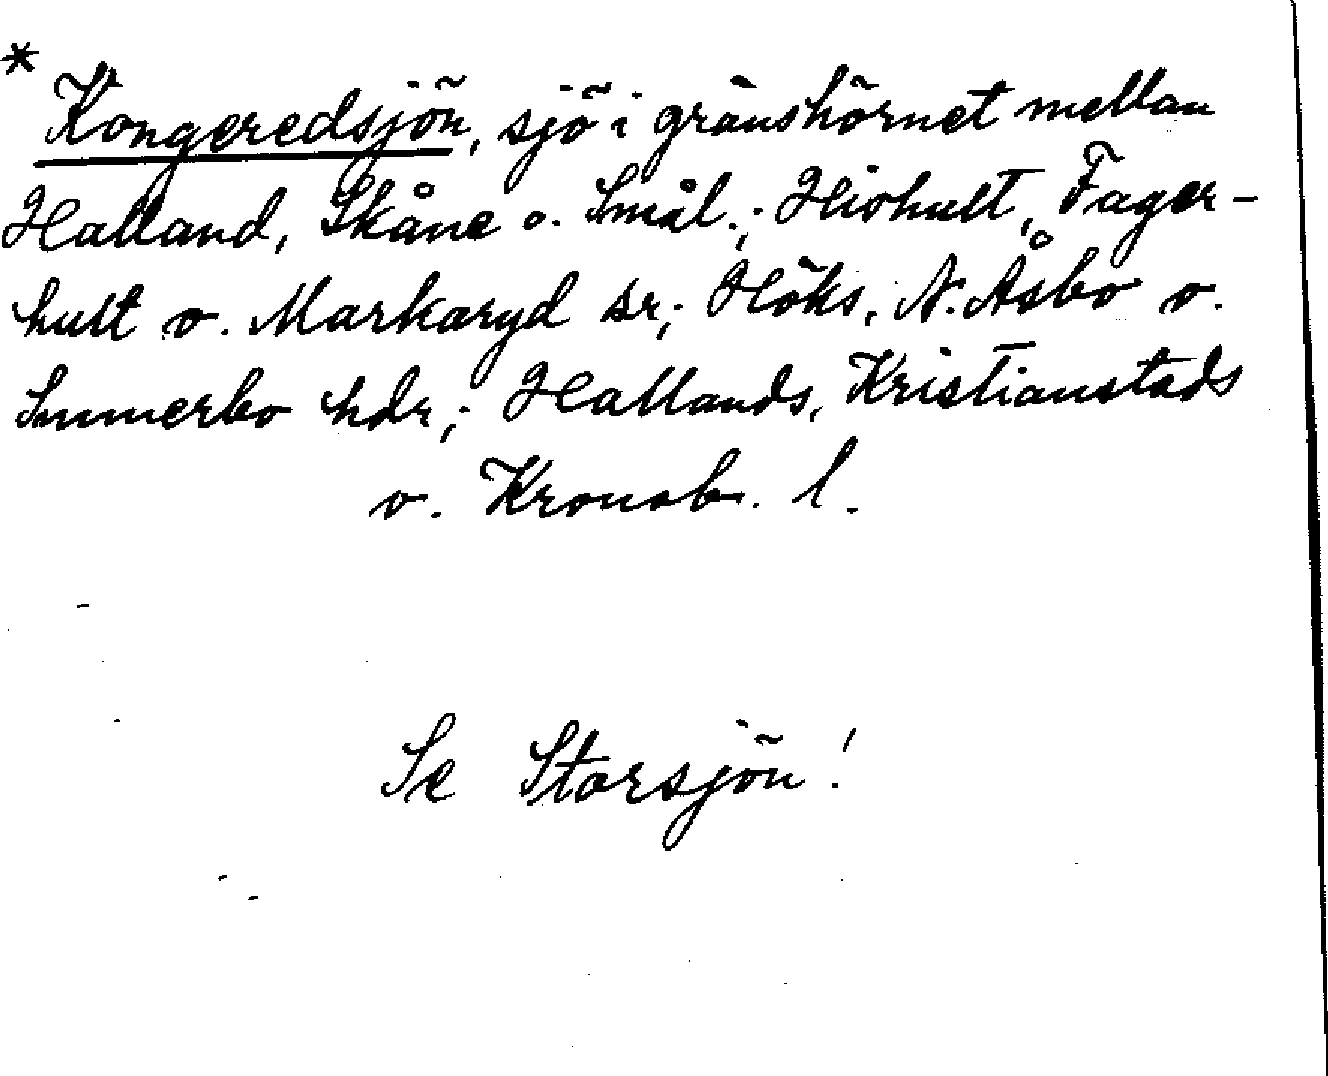 * Kongeredsjön, sjö i gränshörnet mellan
Halland, Skåne o. Smål.; Hishult, Fager-
hult o. Markaryd sr; Höks, N. Åsbo o.
Sunnerbo hdr; Hallands, Kristianstads
o. Kronob. l.
Se Storsjön!